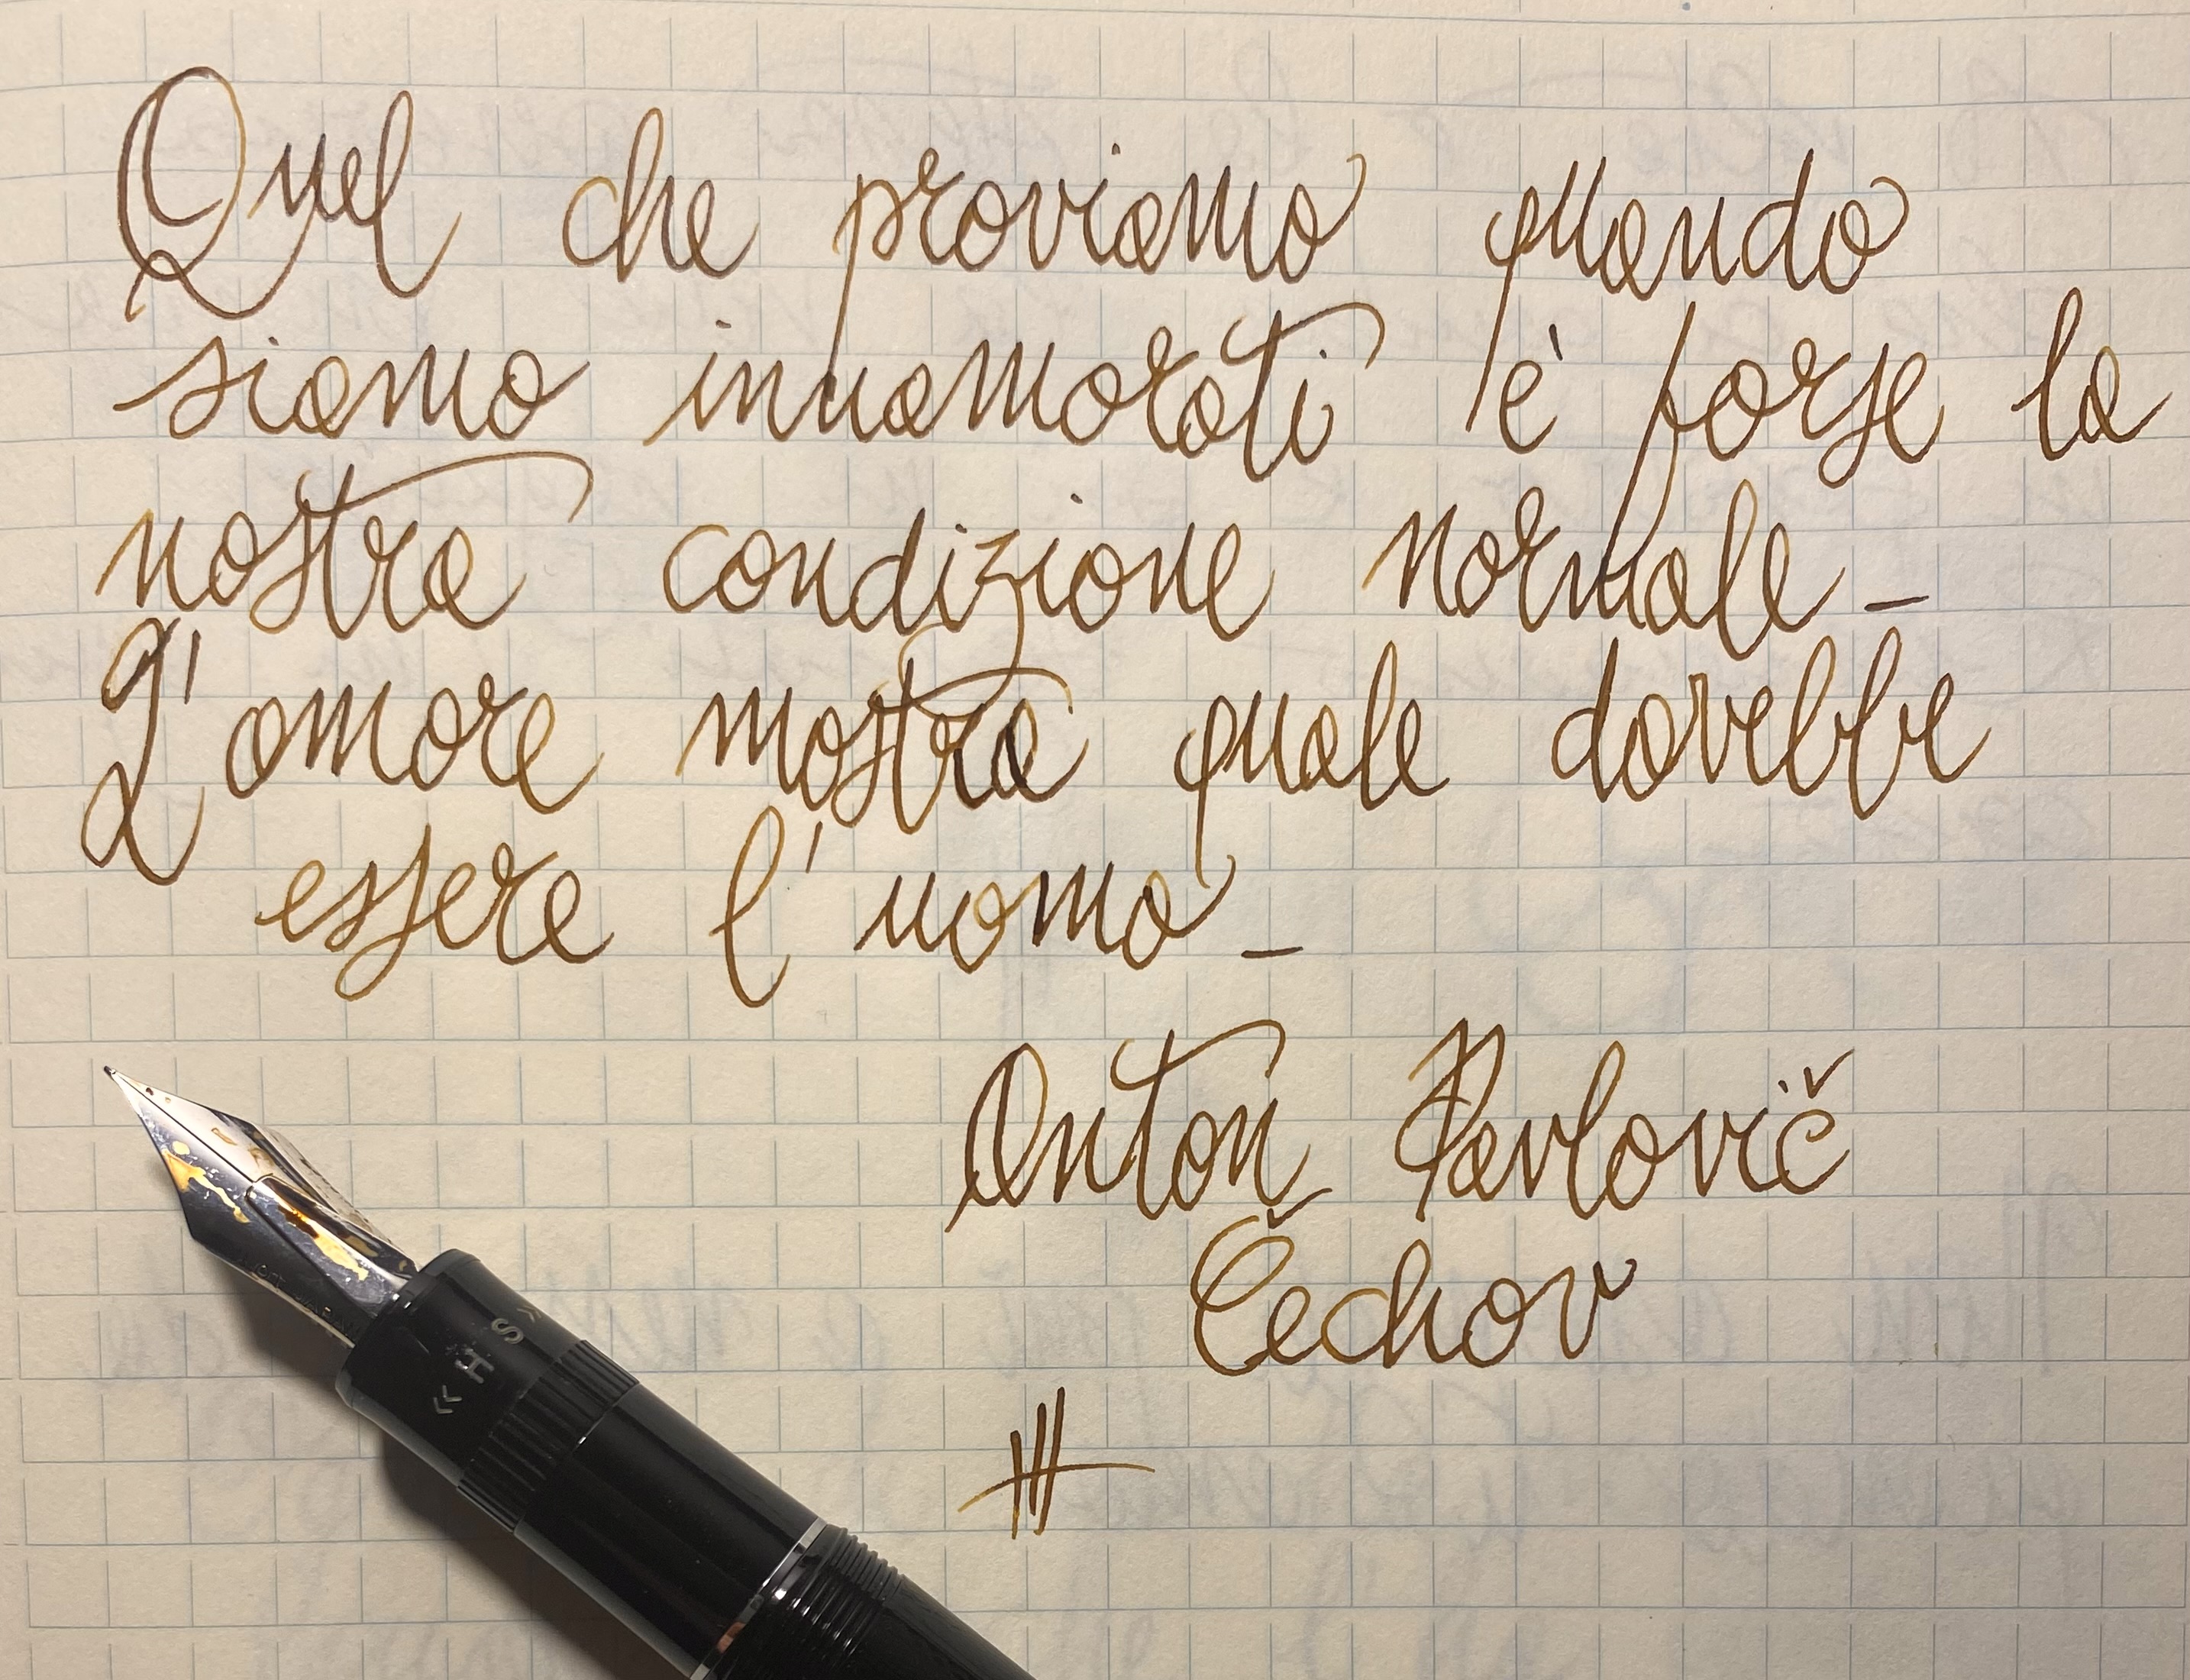 Quel che proviamo quando
siamo innamorati è forse la
nostra condizione normale_
L'amore mostra quale dovrebbe
essere l'uomo_
Anton Pavlovič
Čechov
« H S »